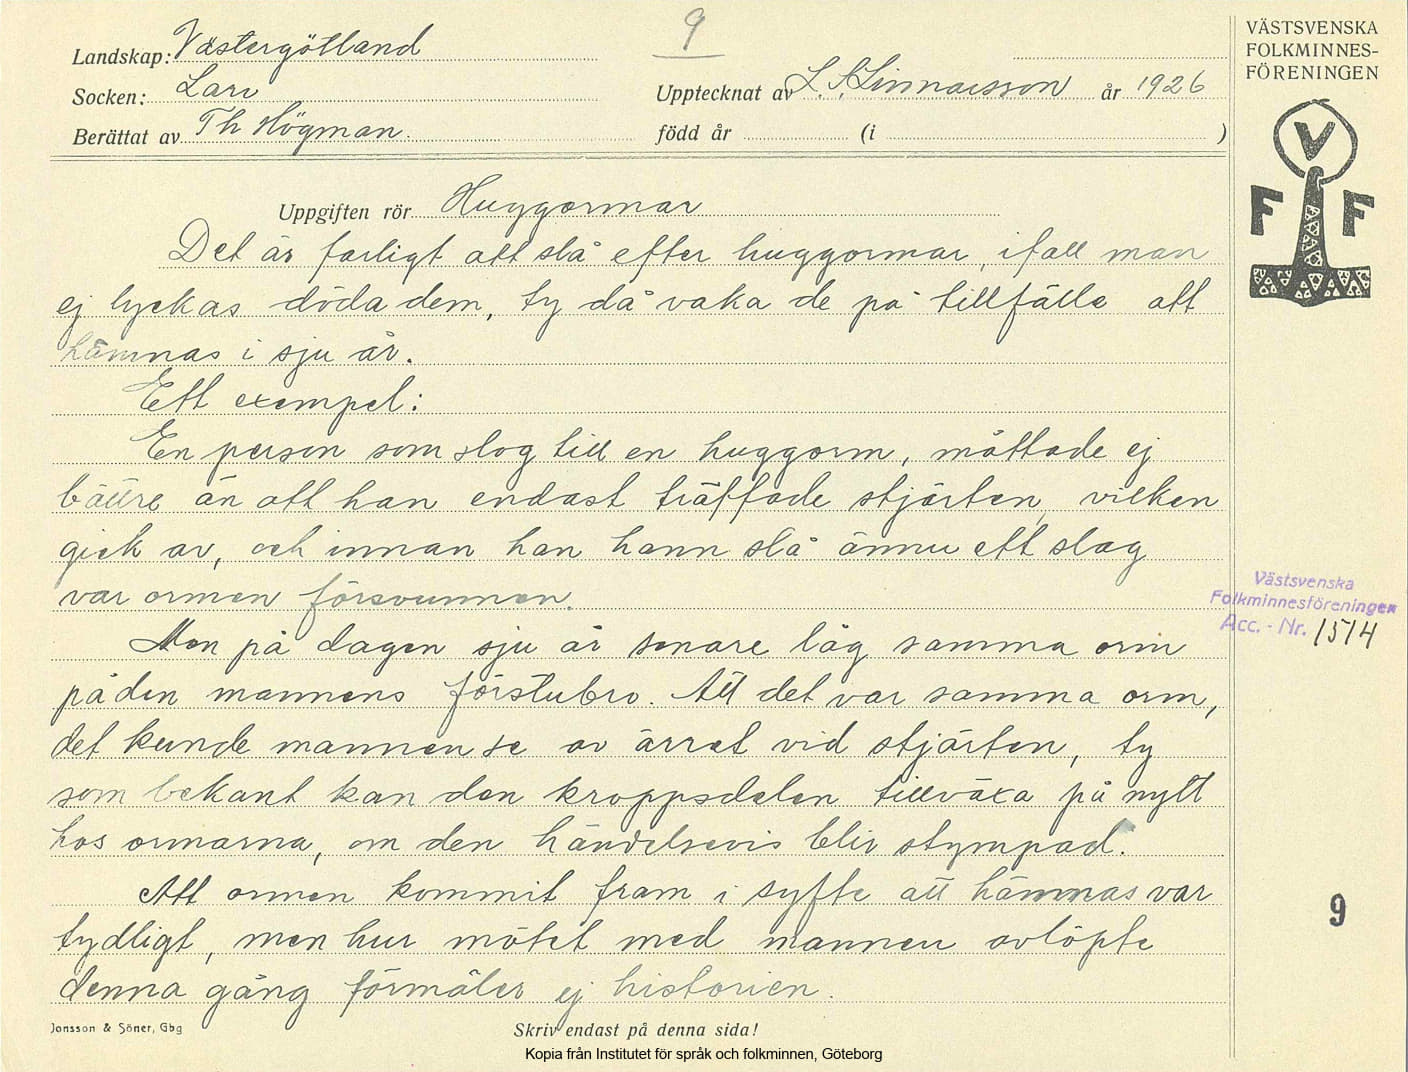 9
Landskap: Västergötland
Socken: Larv
Berättat av Th Högman
Upptecknat av L. S. Linnarsson år 1926
född år (i )
VÄSTSVENSKA
FOLKMINNES-
FÖRENINGEN
V
F F
Uppgiften rör Huggormar
Det är farligt att slå efter huggormar, ifall man
ej lyckas döda dem, ty då vaka de på tillfälle att
hämnas i sju år.
Ett exempel:
En person som slog till en huggorm, måttade ej
bättre än att han endast träffade stjärten, vilken
gick av, och innan han hann slå ännu ett slag
var ormen försvunnen.
Men på dagen sju år senare låg samma orm
på den mannens förstubro. Att det var samma orm,
det kunde mannen se av ärret vid stjärten, ty
som bekant kan den kroppsdelen tillväxa på nytt
hos ormarna, om den händelsevis blir stympad.
Att ormen kommit fram i syfte att hämnas var
tydligt, men hur mötet med mannen avlöpte
denna gång förmäler ej historien.
Västsvenska
Folkminnesföreningen
Acc. - Nr. 1514
9
Jonsson & Söner, Gbg
Skriv endast på denna sida!
Kopia från Institutet för språk och folkminnen, Göteborg